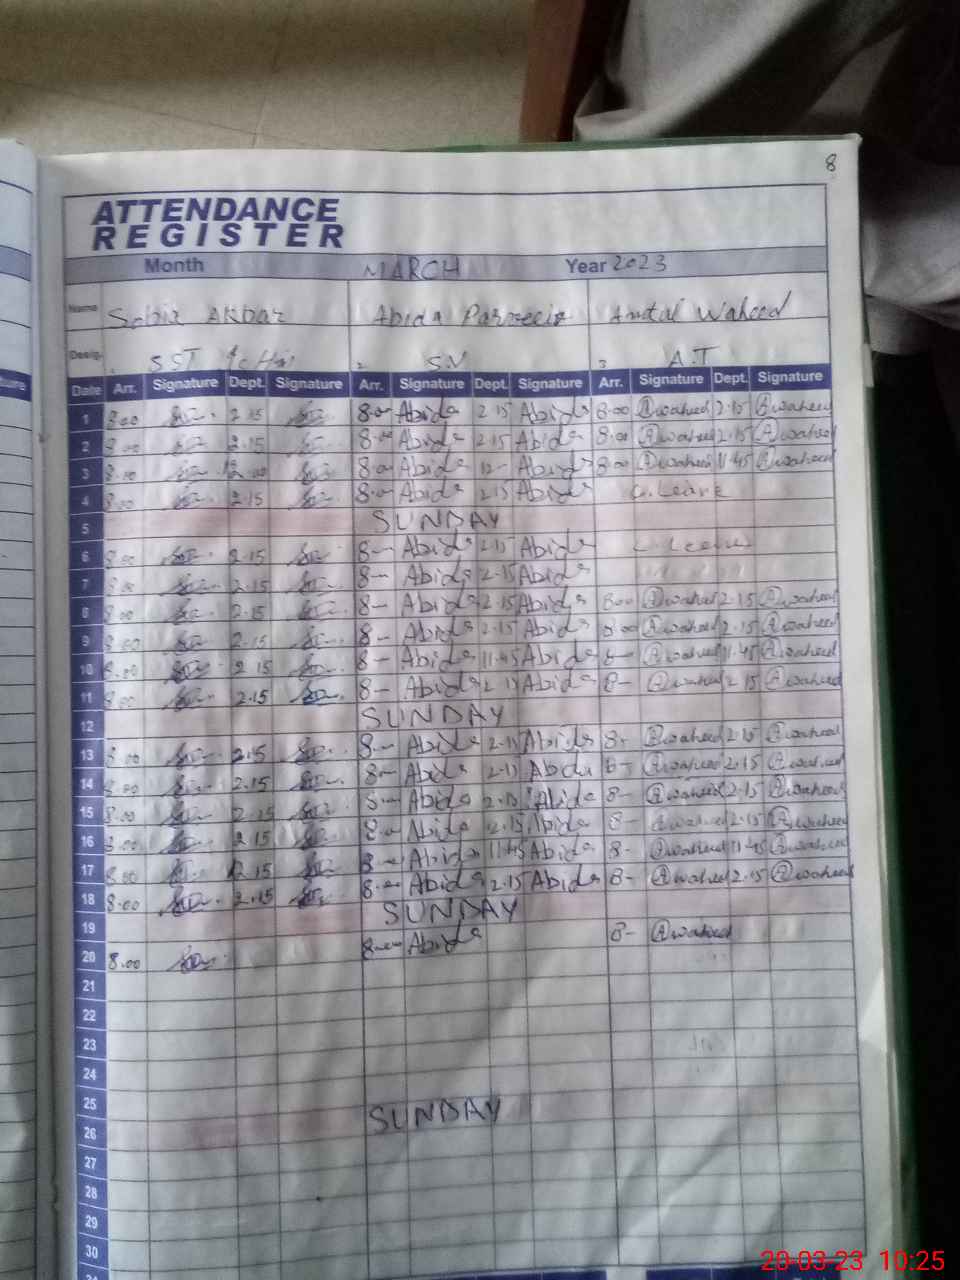 8
ATTENDANCE
REGISTER
Month MARCH Year 2023
Name Sobia Akbar Abida Parveen Amtal Waheed
Desig. 1. SST 2. S.V 3. A.T
Date Arr. Signature Dept. Signature Arr. Signature Dept. Signature Arr. Signature Dept. Signature
1 8.00 2.15 8.00 Abida 2.15 Abida 8.00 Awaheed 2.15 Awaheed
2 8.00 2.15 8.00 Abida 2.15 Abida 8.00 Awaheed 2.15 Awaheed
3 8.00 12.00 8.00 Abida 12- Abida 8.00 Awaheed 11.45 Awaheed
4 8.00 2.15 8.00 Abida 2.15 Abida C.Leave
5 SUNDAY
6 8.00 2.15 8- Abida 2.15 Abida C.Leave
7 8.00 2.15 8- Abida 2.15 Abida
8 8.00 2.15 8- Abida 2.15 Abida 8.00 Awaheed 2.15 Awaheed
9 8.00 2.15 8- Abida 2.15 Abida 8.00 Awaheed 2.15 Awaheed
10 8.00 2.15 8- Abida 11.45 Abida 8- Awaheed 11.45 Awaheed
11 8.00 2.15 8- Abida 2.15 Abida 8- Awaheed 2.15 Awaheed
12 SUNDAY
13 8.00 2.15 8- Abida 2.15 Abida 8- Awaheed 2.15 Awaheed
14 8.00 2.15 8- Abida 2.15 Abida 8- Awaheed 2.15 Awaheed
15 8.00 2.15 8- Abida 2.15 Abida 8- Awaheed 2.15 Awaheed
16 8.00 2.15 8.00 Abida 2.15 Abida 8- Awaheed 2.15 Awaheed
17 8.00 12.15 8- Abida 11.45 Abida 8- Awaheed 11.45 Awaheed
18 8.00 2.15 8.00 Abida 2.15 Abida 8- Awaheed 2.15 Awaheed
19 SUNDAY
20 8.00 8.00 Abida 8- Awaheed
21
22
23
24
25
26 SUNDAY
27
28
29
30
20-03-23 10:25